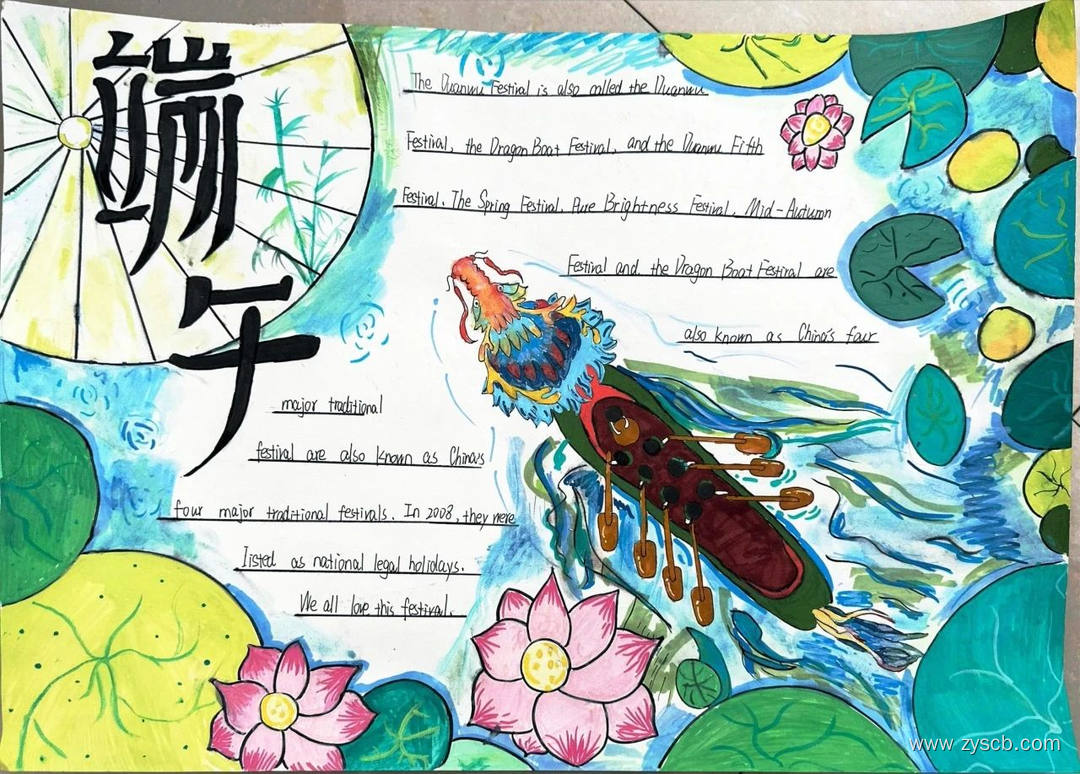 端午
The Duanwu Festival is also called the Duanwu
Festival, the Dragon Boat Festival, and the Duanwu Fifth
Festival. The Spring Festival, Pure Brightness Festival, Mid-Autumn
Festival and the Dragon Boat Festival are
also known as China's four
major traditional
festival are also known as China's
four major traditional festivals. In 2008, they were
listed as national legal holidays.
We all love this festival.
www.zyscb.com